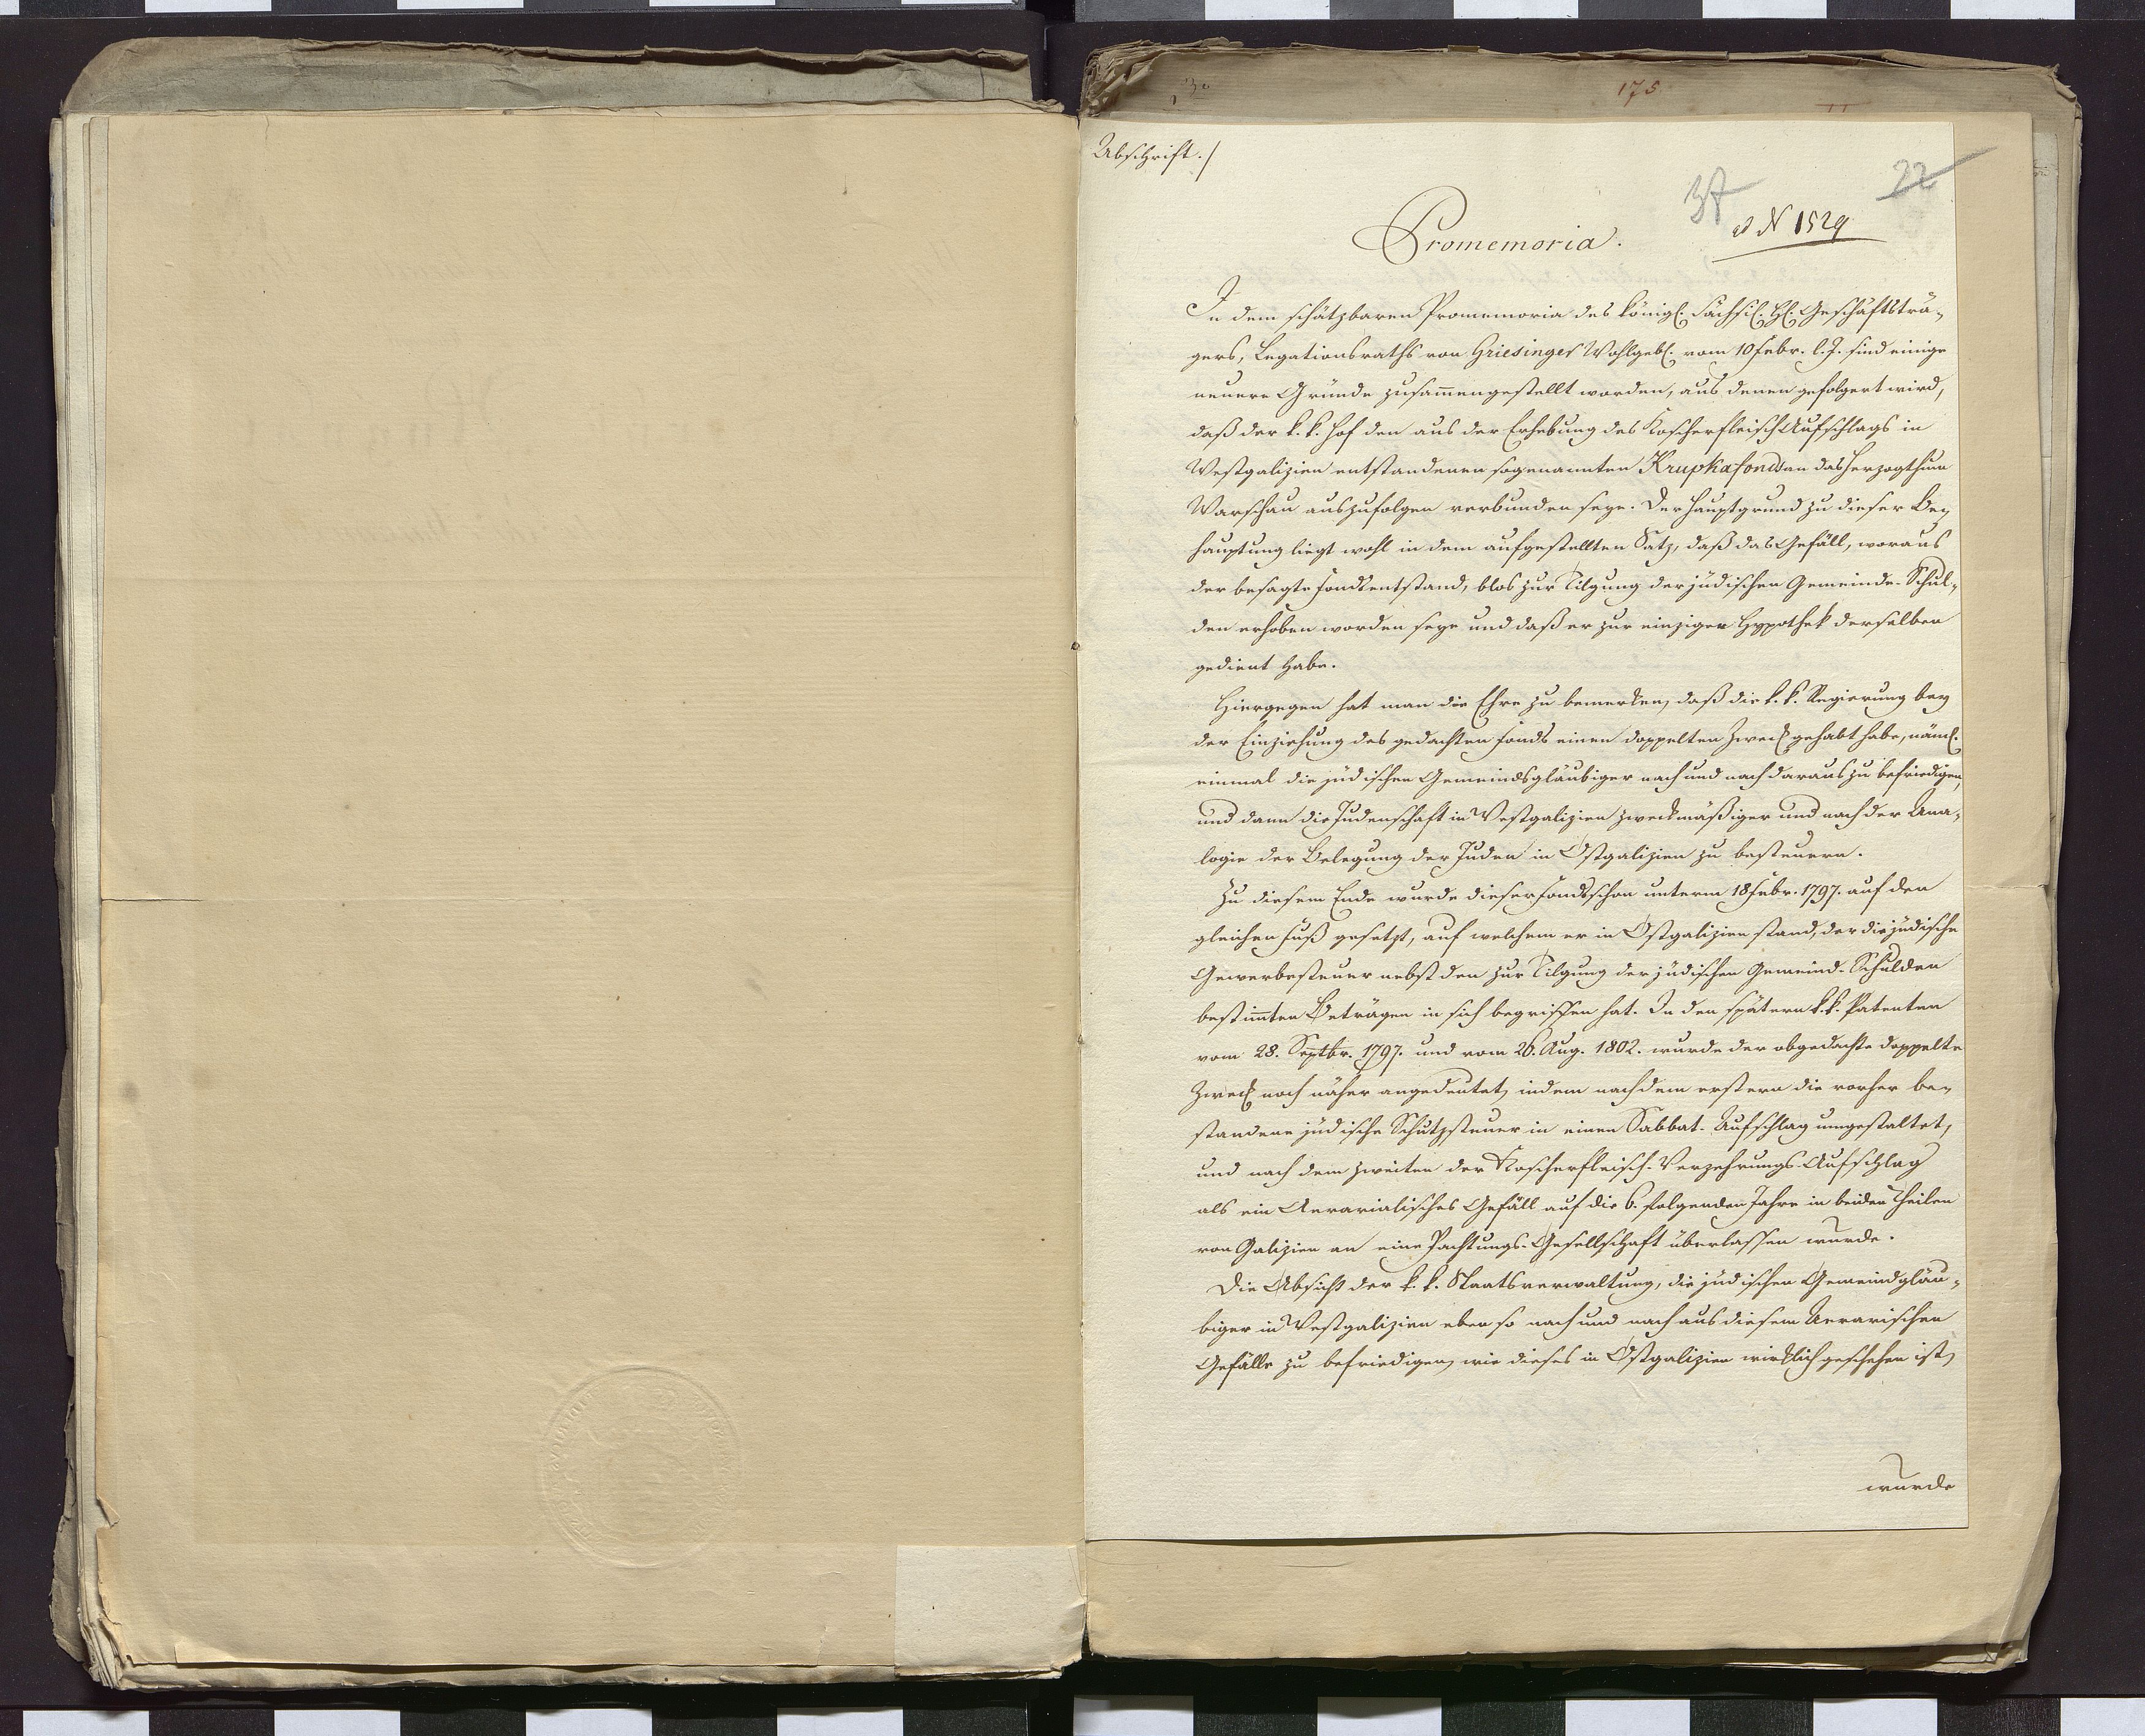 175
Abschrift./
37
22
ad N 1529
Promemoria.
In dem schätzbaren Promemoria des königl. Sächsis. H. Geschäftsträ-
gers, Legationsraths von Griesinger Wohlgebl. vom 10 Febr. l. J. sind einige
neuere Gründe zusam̄engestellt worden, aus denen gefolgert wird,
daß der k. k. Hof den aus der Erhebung des Koscherfleisch Aufschlags in
Westgalizien entstandenen sogenannten Krupkafonds an das Herzogthum
Warschau auszufolgen verbunden seye. Der Hauptgrund zu dieser Be-
hauptung liegt wohl in dem aufgestellten Satz, daß das Gefäll, woraus
der besagte Fonds entstand, blos zur Tilgung der jüdischen Gemeinde-Schul-
den erhoben worden seye und daß er zur einzigen Hypothek derselben
gedient habe.
Hiergegen hat man die Ehre zu bemerken, daß die k. k. Regierung bey
der Einziehung des gedachten Fonds einen doppelten Zweck gehabt habe, näml.
einmal die jüdischen Gemeindsgläubiger nach und nach daraus zu befriedigen,
und dann die Judenschaft in Westgalizien zweckmäßiger und nach der Ana-
logie der Belegung der Juden in Ostgalizien zu besteuern.
Zu diesem Ende wurde dieser Fonds schon unterm 18 Febr. 1797. auf den
gleichen Fuß gesetzt, auf welchem er in Ostgalizien stand, der die jüdische
Gewerbesteuer nebst den zur Tilgung der jüdischen Gemeind-Schulden
bestim̄ten Beträgen in sich begriffen hat. In den spätern k. k. Patenten
vom 28. Septbr. 1797. und vom 26. Aug. 1802. wurde der obgedachte doppelte
Zweck noch näher angedeutet, indem nach dem erstern die vorher be-
standene jüdische Schutzsteuer in einen Sabbat-Aufschlag umgestaltet,
und nach dem zweiten der Koscherfleisch-Verzehrungs-Aufschlag
als ein Aerarialisches Gefäll auf die 6. folgenden Jahre in beiden Theilen
von Galizien an eine Pachtungs-Gesellschaft überlassen wurde.
Die Absicht der k. k. Staatsverwaltung, die jüdischen Gemeindgläu-
biger in Westgalizien eben so nach und nach aus diesem Aerarischen
Gefälle zu befriedigen, wie dieses in Ostgalizien wirklich geschehen ist,
wurde